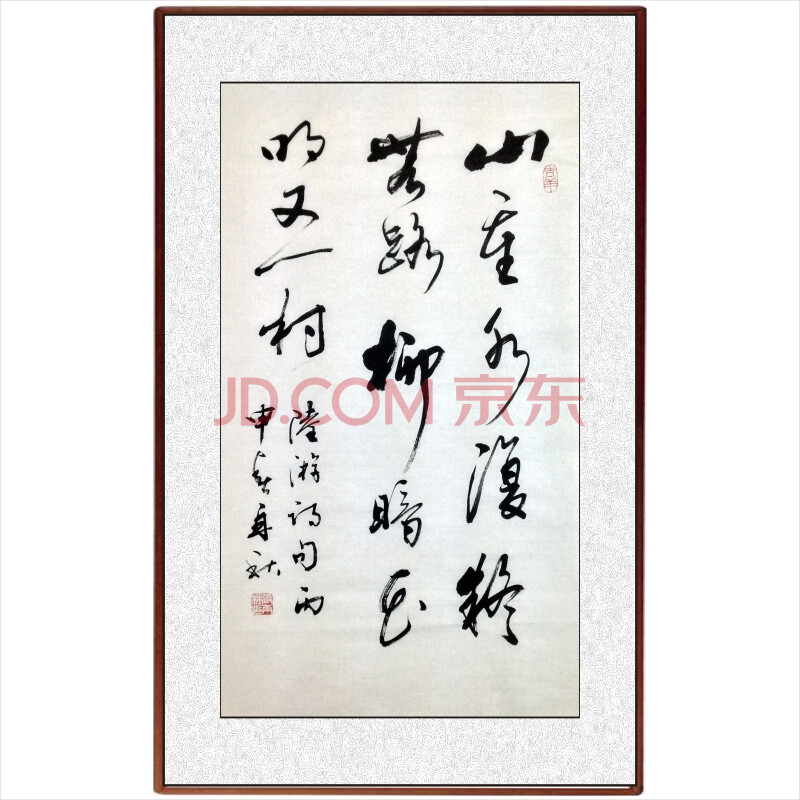 山重水復疑
無路柳暗花
明又一村
陸游詩句丙
申春
JD.COM 京东